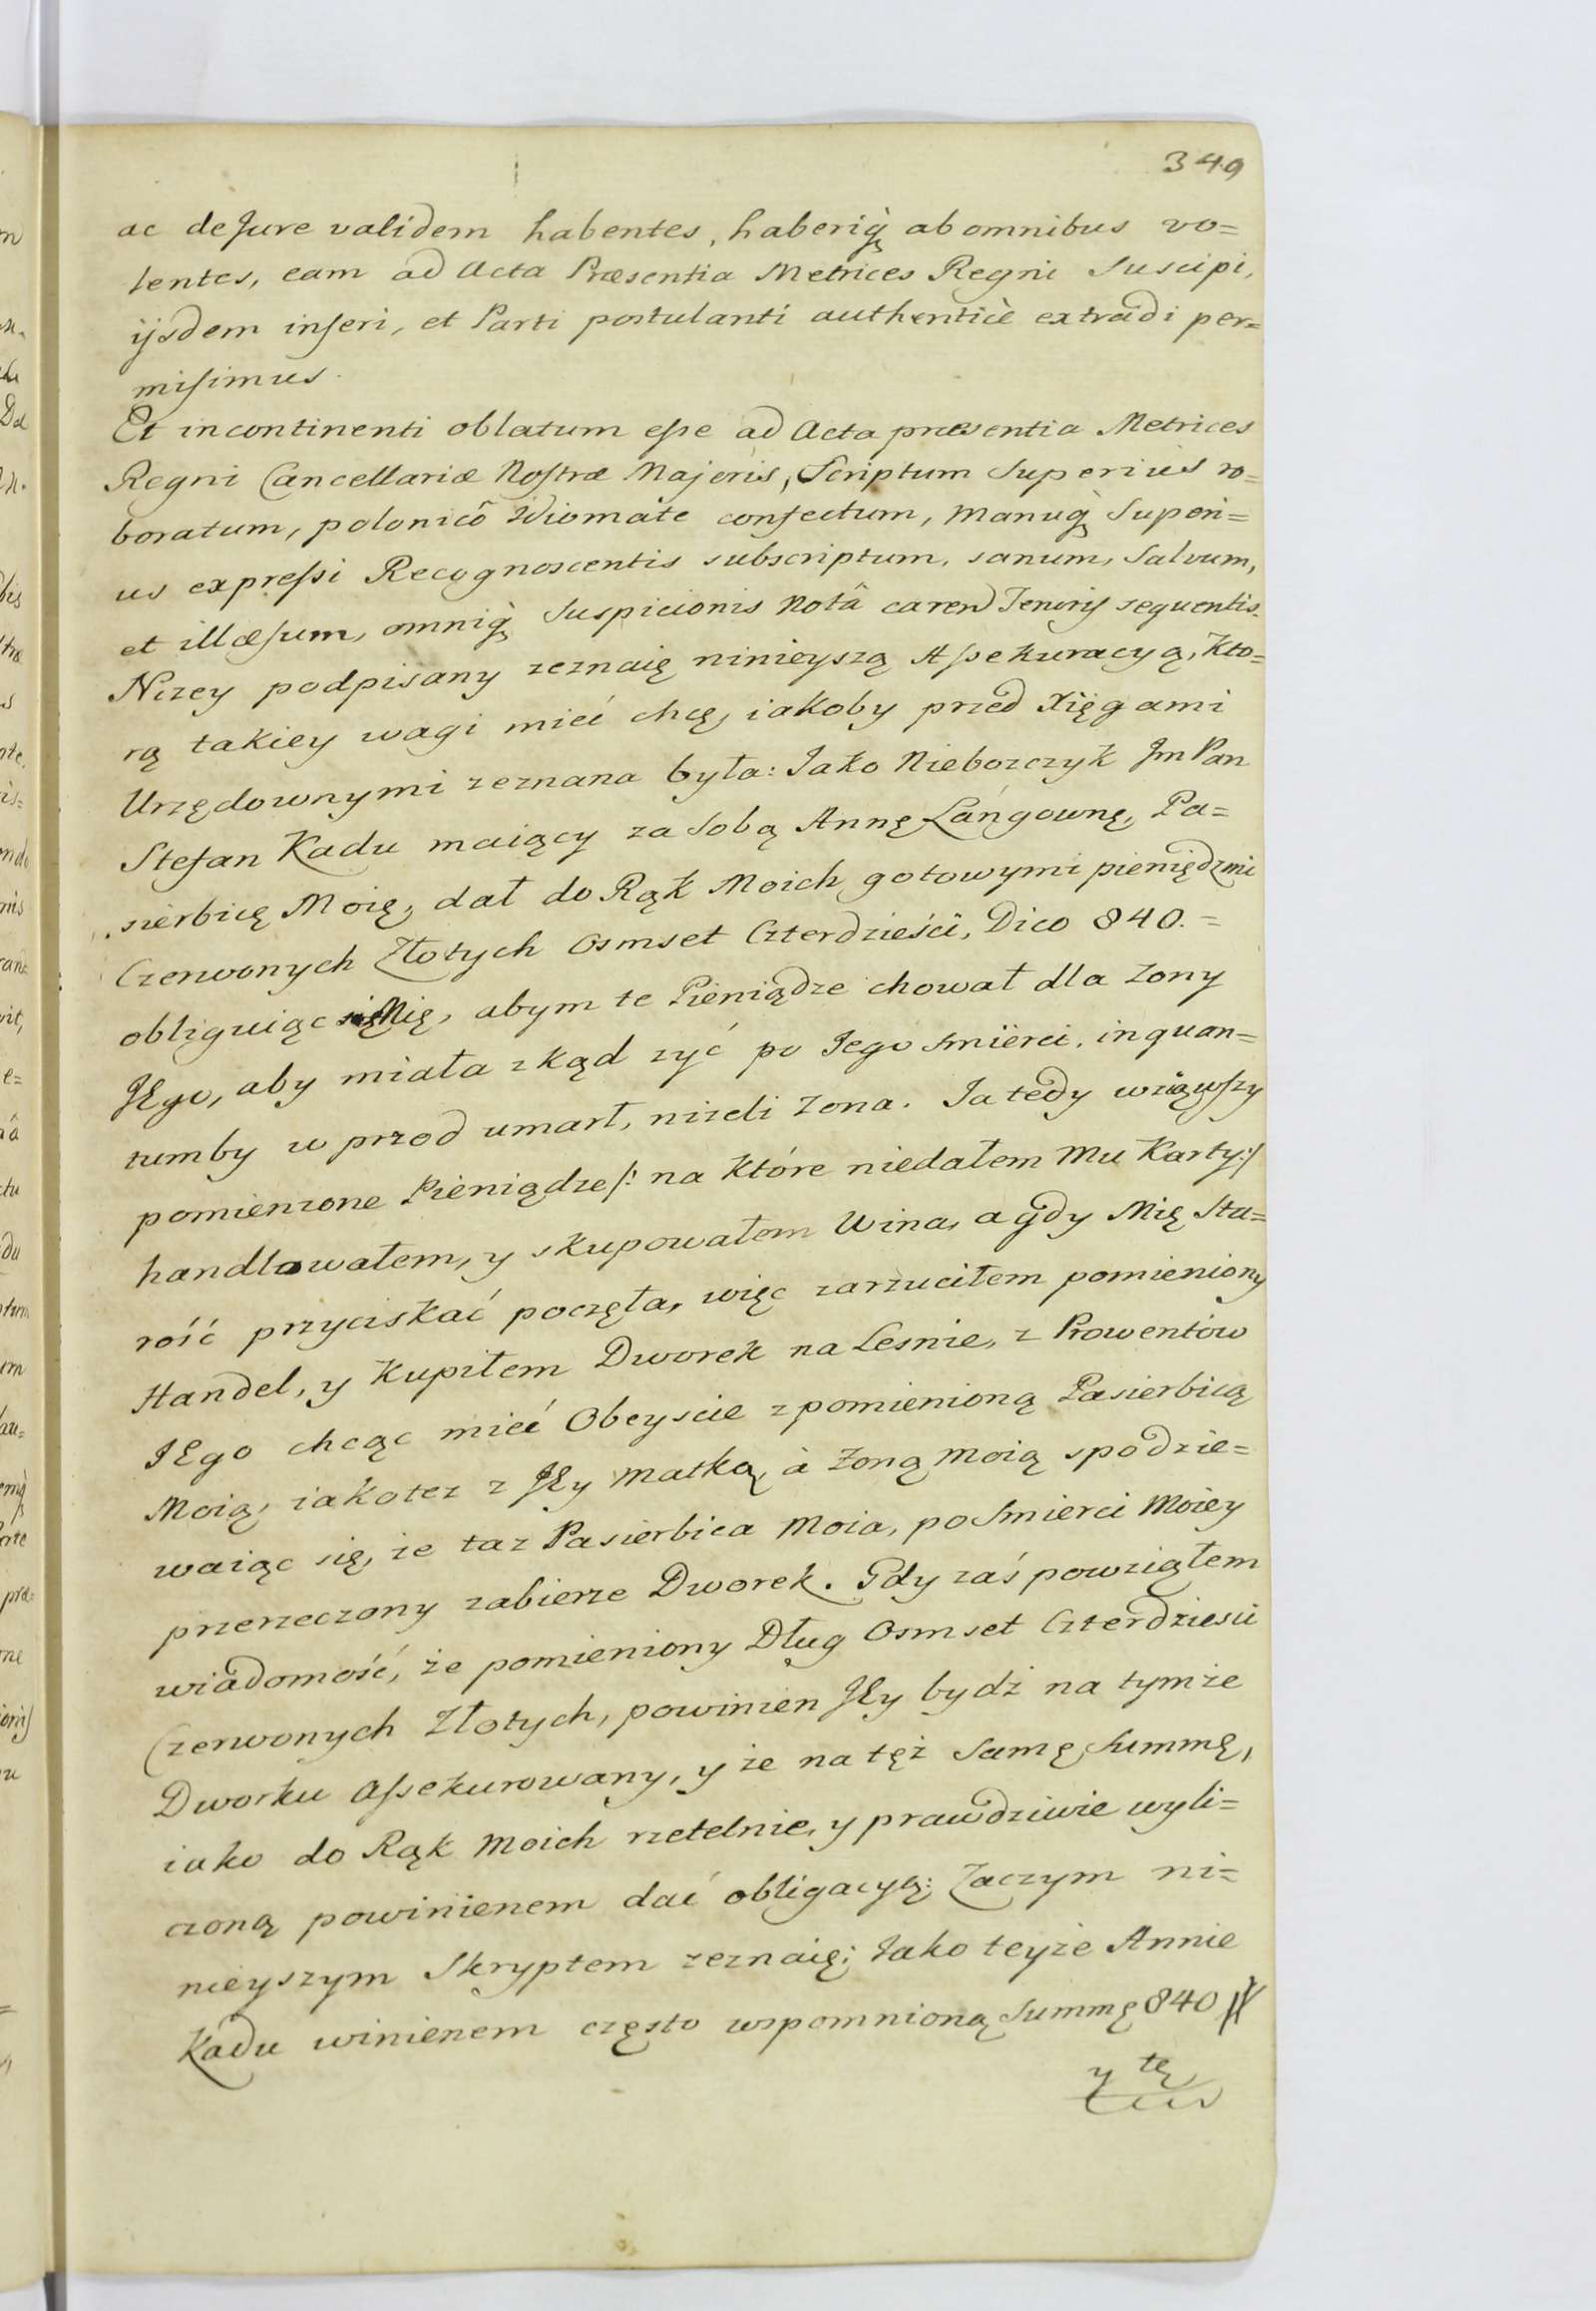 349
ac de Jure validem habentes, haberiq̀ ab omnibus vo=
lentes, eam ad Acta Præsentia Metrices Regni Suscipi,
ijsdem inseri, et Parti postulanti authenticè extradi per=
misimus.
Et incontinenti oblatum esse ad Acta præsentia Metrices
Regni Cancellariæ Nostræ Majoris, Scriptum Superius ro=
boratum, polonicô Idiomate confectum, Manuq̀ Superi=
us expressi Recognoscentis subscriptum, sanum, Salvum,
et illæsum, omniq̀ Suspicionis Notâ caren Tenoris sequentis.
Nizey podpisany zeznaię ninieyszą Assekuracyą, Kto=
rą takiey wagi mieć chcę, iakoby przed Xięgami
Urzędownymi zeznana była: Jako Nieborczyk Jm Pan
Stefan Kadu maiący za Sobą Annę Langownę, Pa=
sierbicę Moię, dał do Rąk Moich gotowymi pieniędzmi
Czerwonych Złotych Osmset Czterdzieści, Dico 840.=
obliguiąc Mię, abym te Pieniądze chował dla Zony
JEgo, aby miała zkąd zyć po Jego Smierci, inquan=
tumby w przod umarł, nizeli Zona. Ja tedy wziąwszy
pomienione Pieniądze /: na Które niedałem Mu Karty :/
handlowałem, y skupowałem Wina, a gdy Mię Sta=
rość przyciskać poczęła, więc zarzuciłem pomieniony
Handel, y Kupiłem Dworek na Lesnie, z Prowentow
JEgo chcąc mieć Obeyscie z pomienioną Pasierbicą
Moią, iakotez z JEy Matką, à Zoną Moią spodzie=
waiąc się, ze taz Pasierbica Moia, po Smierci Moiey
przerzeczony zabierze Dworek. Gdy zaś powziąłem
wiadomość, że pomieniony Dług Osmset Czterdziesci
Czerwonych Złotych, powinien JEy bydź na tymże
Dworku Assekurowany, y że na tęż Samę Summę,
iako do Rąk Moich rzetelnie, y prawdziwie wyli=
czoną powinienem dać obligacyą: Zaczym ni=
nieyszym Skryptem zeznaię: Jako teyże Annie
Kadu winienem często wspomnioną Summę 840 #
y tę